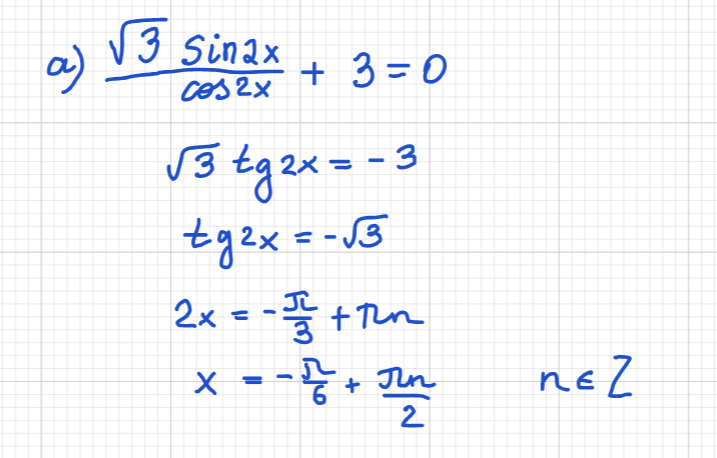 a) √3 sin2x/cos2x + 3 = 0
√3 tg2x = -3
tg2x = -√3
2x = -π/3 + πn
x = -π/6 + πn/2 n ∈ Z